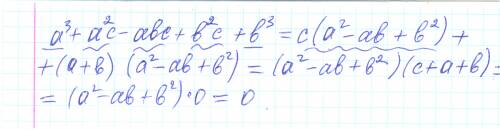 a³ + a²c - abc + b²c + b³ = c(a² - ab + b²) +
+ (a + b) (a² - ab + b²) = (a² - ab + b²)(c + a + b) =
= (a² - ab + b²) · 0 = 0